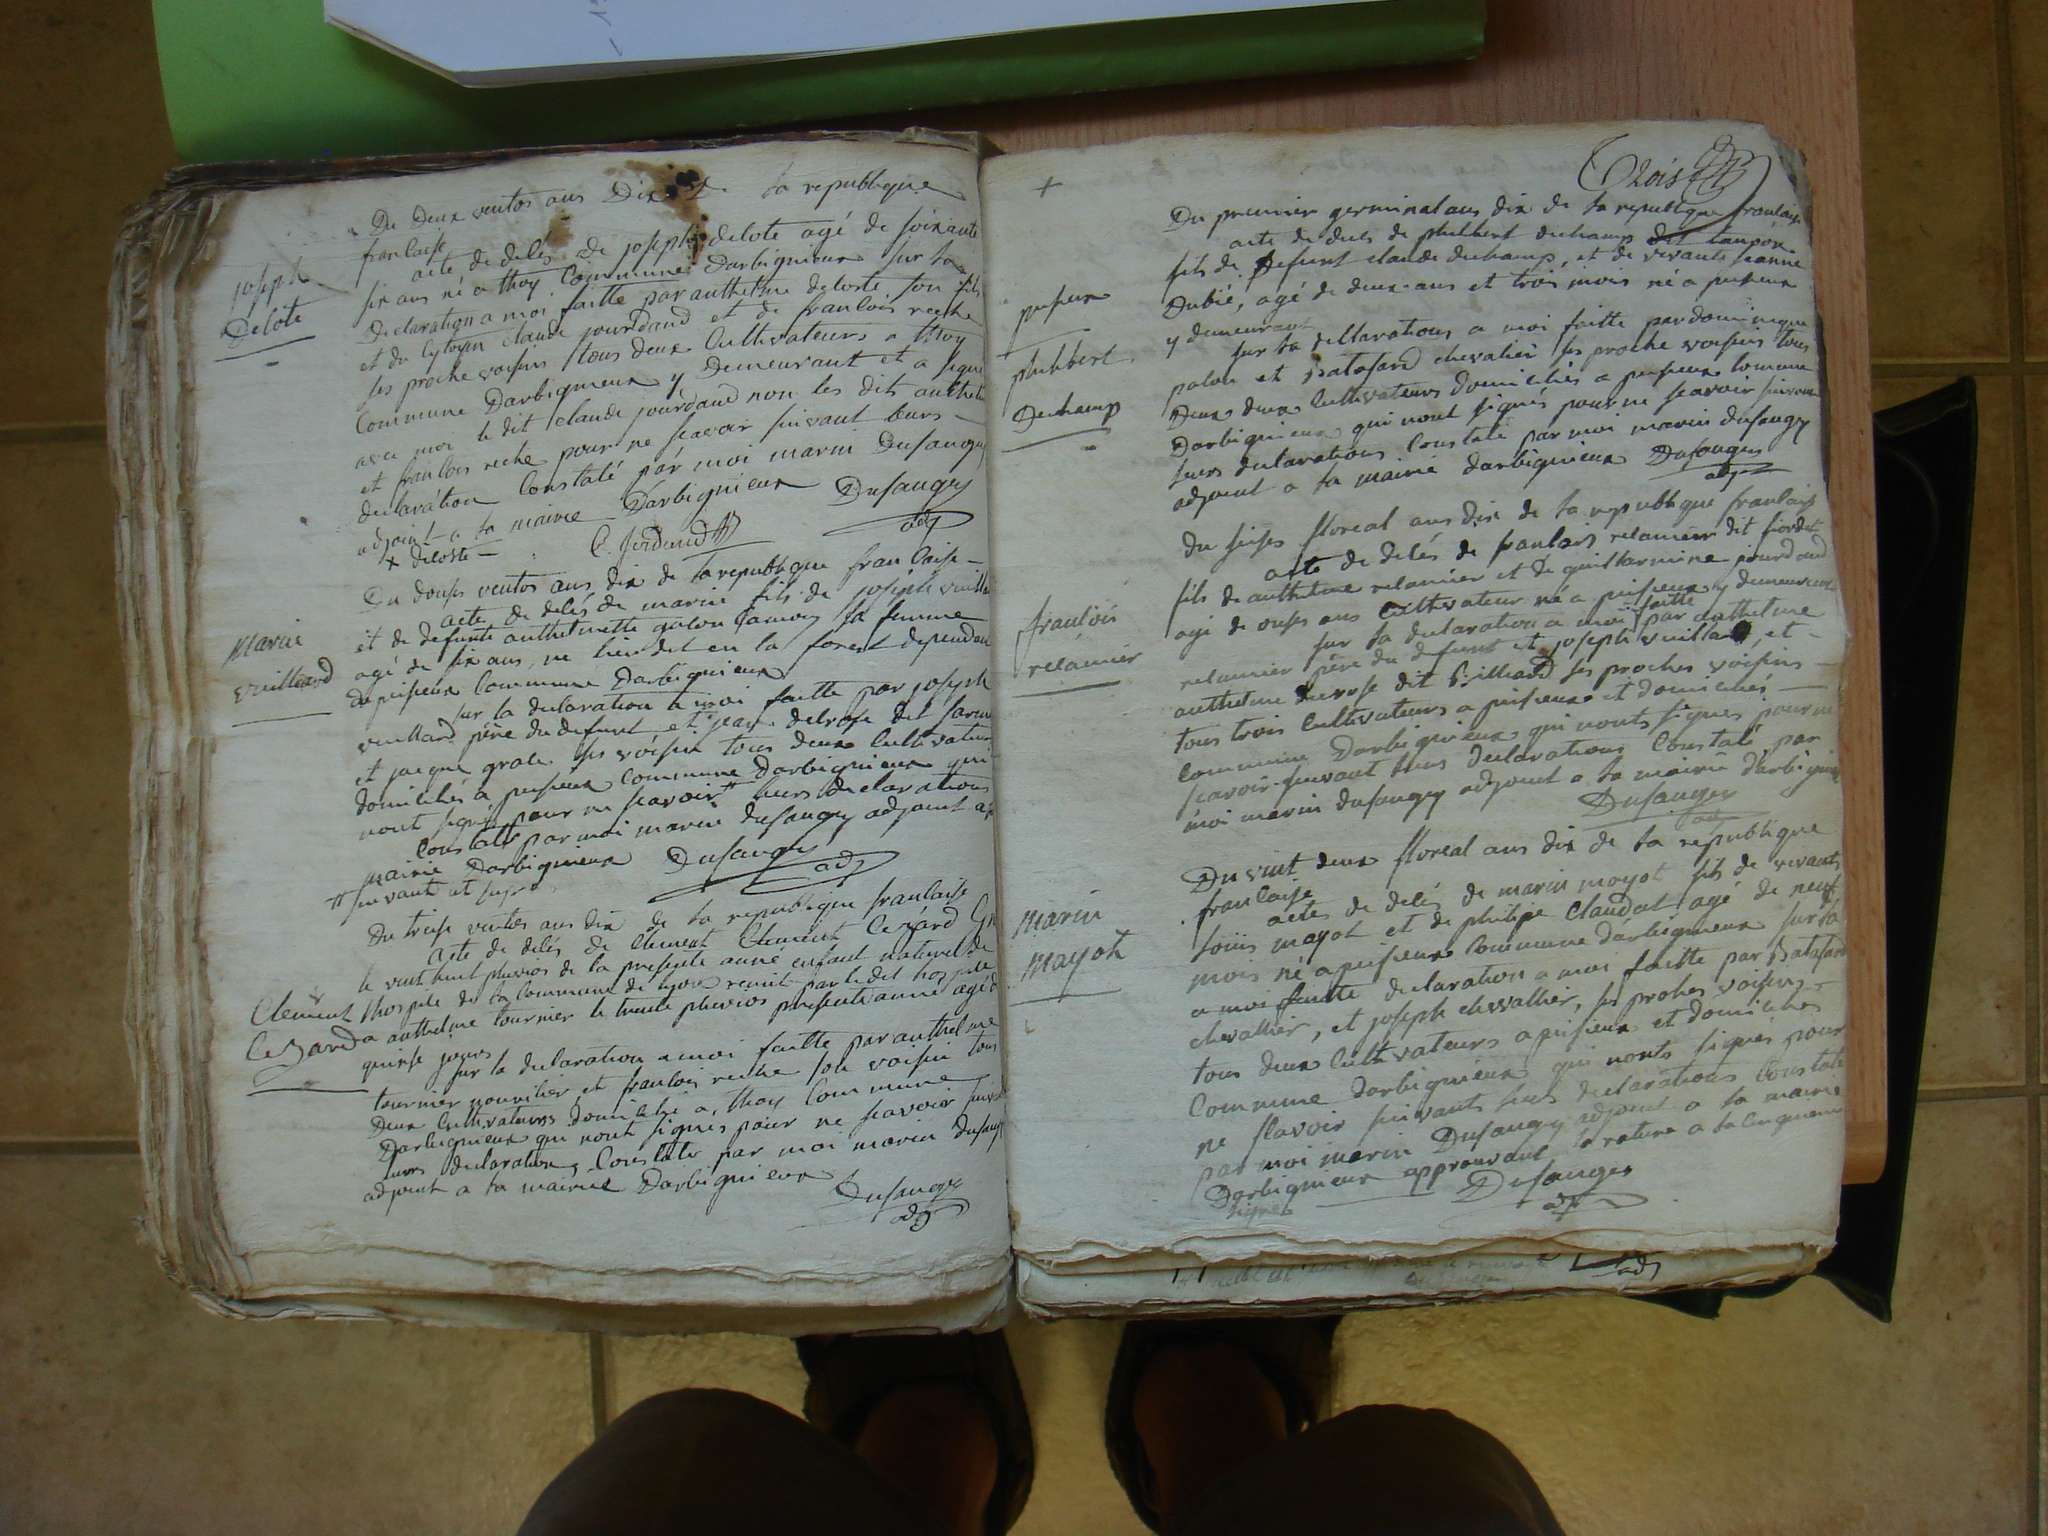 Du Deux ventos ans Dix De la republique
francaise
acte de délés de joseph delote agé de soixante
six ans né a thoy Commune Darbignieux sur la
Declaration a moi faitte par anthelme deloste son fils
et du Cytoyen claude jourdand et de francois reche
ses proche voisins tous deux Cultivateurs a thoy
Commune Darbignieux y Demeurant et a signé
avec moi le dit claude jourdand non les dits anthelme
et francois reche pour ne scavoir suivant leurs
declaration Constaté par moi marin Dusaugey
adjoint a la mairie Darbignieux Dusaugey
adj
+ deloste C. Jordand
joseph
Delote
Du douse ventos ans dix de la republique francaise
acte de délés de marin fils de joseph vuillard
et de defunte anthelmette galon Camoz sa femme
agé de six ans, né lieu dit en la forest dependant
de pusieux Commune Darbignieux
sur la declaration a moi faitte par joseph
vuillard père du defunt et jean delrose dit
et jacque grale ses voisin tous deux Cultivateurs
domiciliés a pusieux Commune Darbignieux qui
nont signé pour ne scavoir # leurs declarations
Constaté par moi marin dusaugey adjoint a la
mairie Darbignieux Dusaugey
adj
# suivant et
Marin
vuilliard
Du treise ventos ans dix de la republique francaise
acte de délés de Clement Clement Cezard né
le vint huit pluvios de la presente anné enfant naturel de
lhospile de la Commune de lyon remit par le dit hospile
a anthelme tournier le trente pluvios presente anné agé de
quinse jours
sur la declaration a moi faitte par anthelme
tournier nouricier et francois reche son voisin tous
deux Cultivateurs domicilié a thoy Commune
Darbignieux qui nont signés pour ne scavoir suivant
leurs declaration, Constaté par moi marin dusaugey
adjoint a la mairie Darbignieux
Dusaugey
adj
Clement
Cezard
trois
Du premier germinal ans dix de la republique francaise
acte de délés de philibert duchamp
fils de defunt claude duchamp, et de vivante jeanne
Dubié, agé de deux ans et trois mois né a pusieux
y demeurant
sur la declarations a moi faitte par dominique
palon et Batafard chevalier ses proche voisins tous
Deux deux Cultivateurs domiciliés a pusieux Commune
Darbignieux qui nont signés pour ne scavoir suivant
leurs declarations Constaté par moi marin dusaugey
adjoint a la mairie darbignieux Dusaugey
adj
+
pusieux
philibert
Dechamp
du seises floreal ans dix de la republique francaise
acte de délés de francois relanier dit
fils de anthelme relanier et de guillarmine jourdand
agé de onses ans Cultivateur né a pusieux y demeurant
sur la declaration a moi faitte par anthelme
relannier père du defunt et joseph vuillard, et
anthelme durose dit Billiard ses proches voisins
tous trois Cultivateurs a pusieux et domiciliés
Commune Darbignieux qui nonts signés pour ne
scavoir suivant leurs declarations Constaté par
moi marin dusaugey adjoint a la mairie darbignieux
Dusaugey
adj
francois
relanier
Du vint deux floreal ans dix de la republique
francaise
actes de délés de marin mayot fils de vivants
louis mayot et de philipe Claudat agé de neuf
mois né a pusieux Commune darbignieux sur la
a moi faitte declaration a moi faitte par Batafard
chevallier, et joseph chevallier, ses proches voisins
tous deux Cultivateurs a pusieux et domiciliés
Commune Darbignieux qui nonts signés pour
ne scavoir suivants leurs declarations Constaté
par moi marin Dusaugey adjoint a la mairie
Darbignieux approuvant la rature a la cinquieme
ligne Dusaugey
adj
marin
mayot
adj